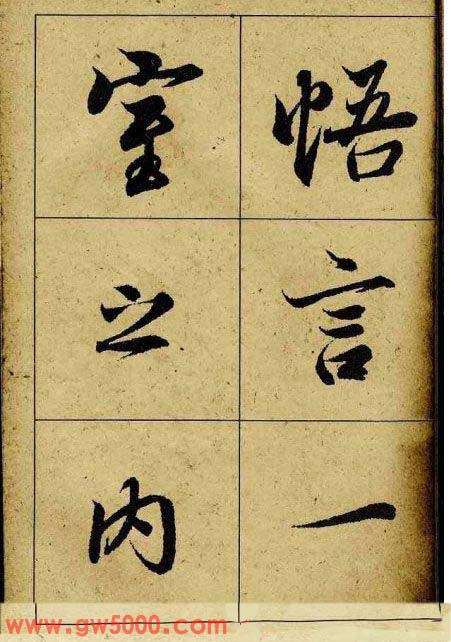 悟言一
室之内
www.gw5000.com